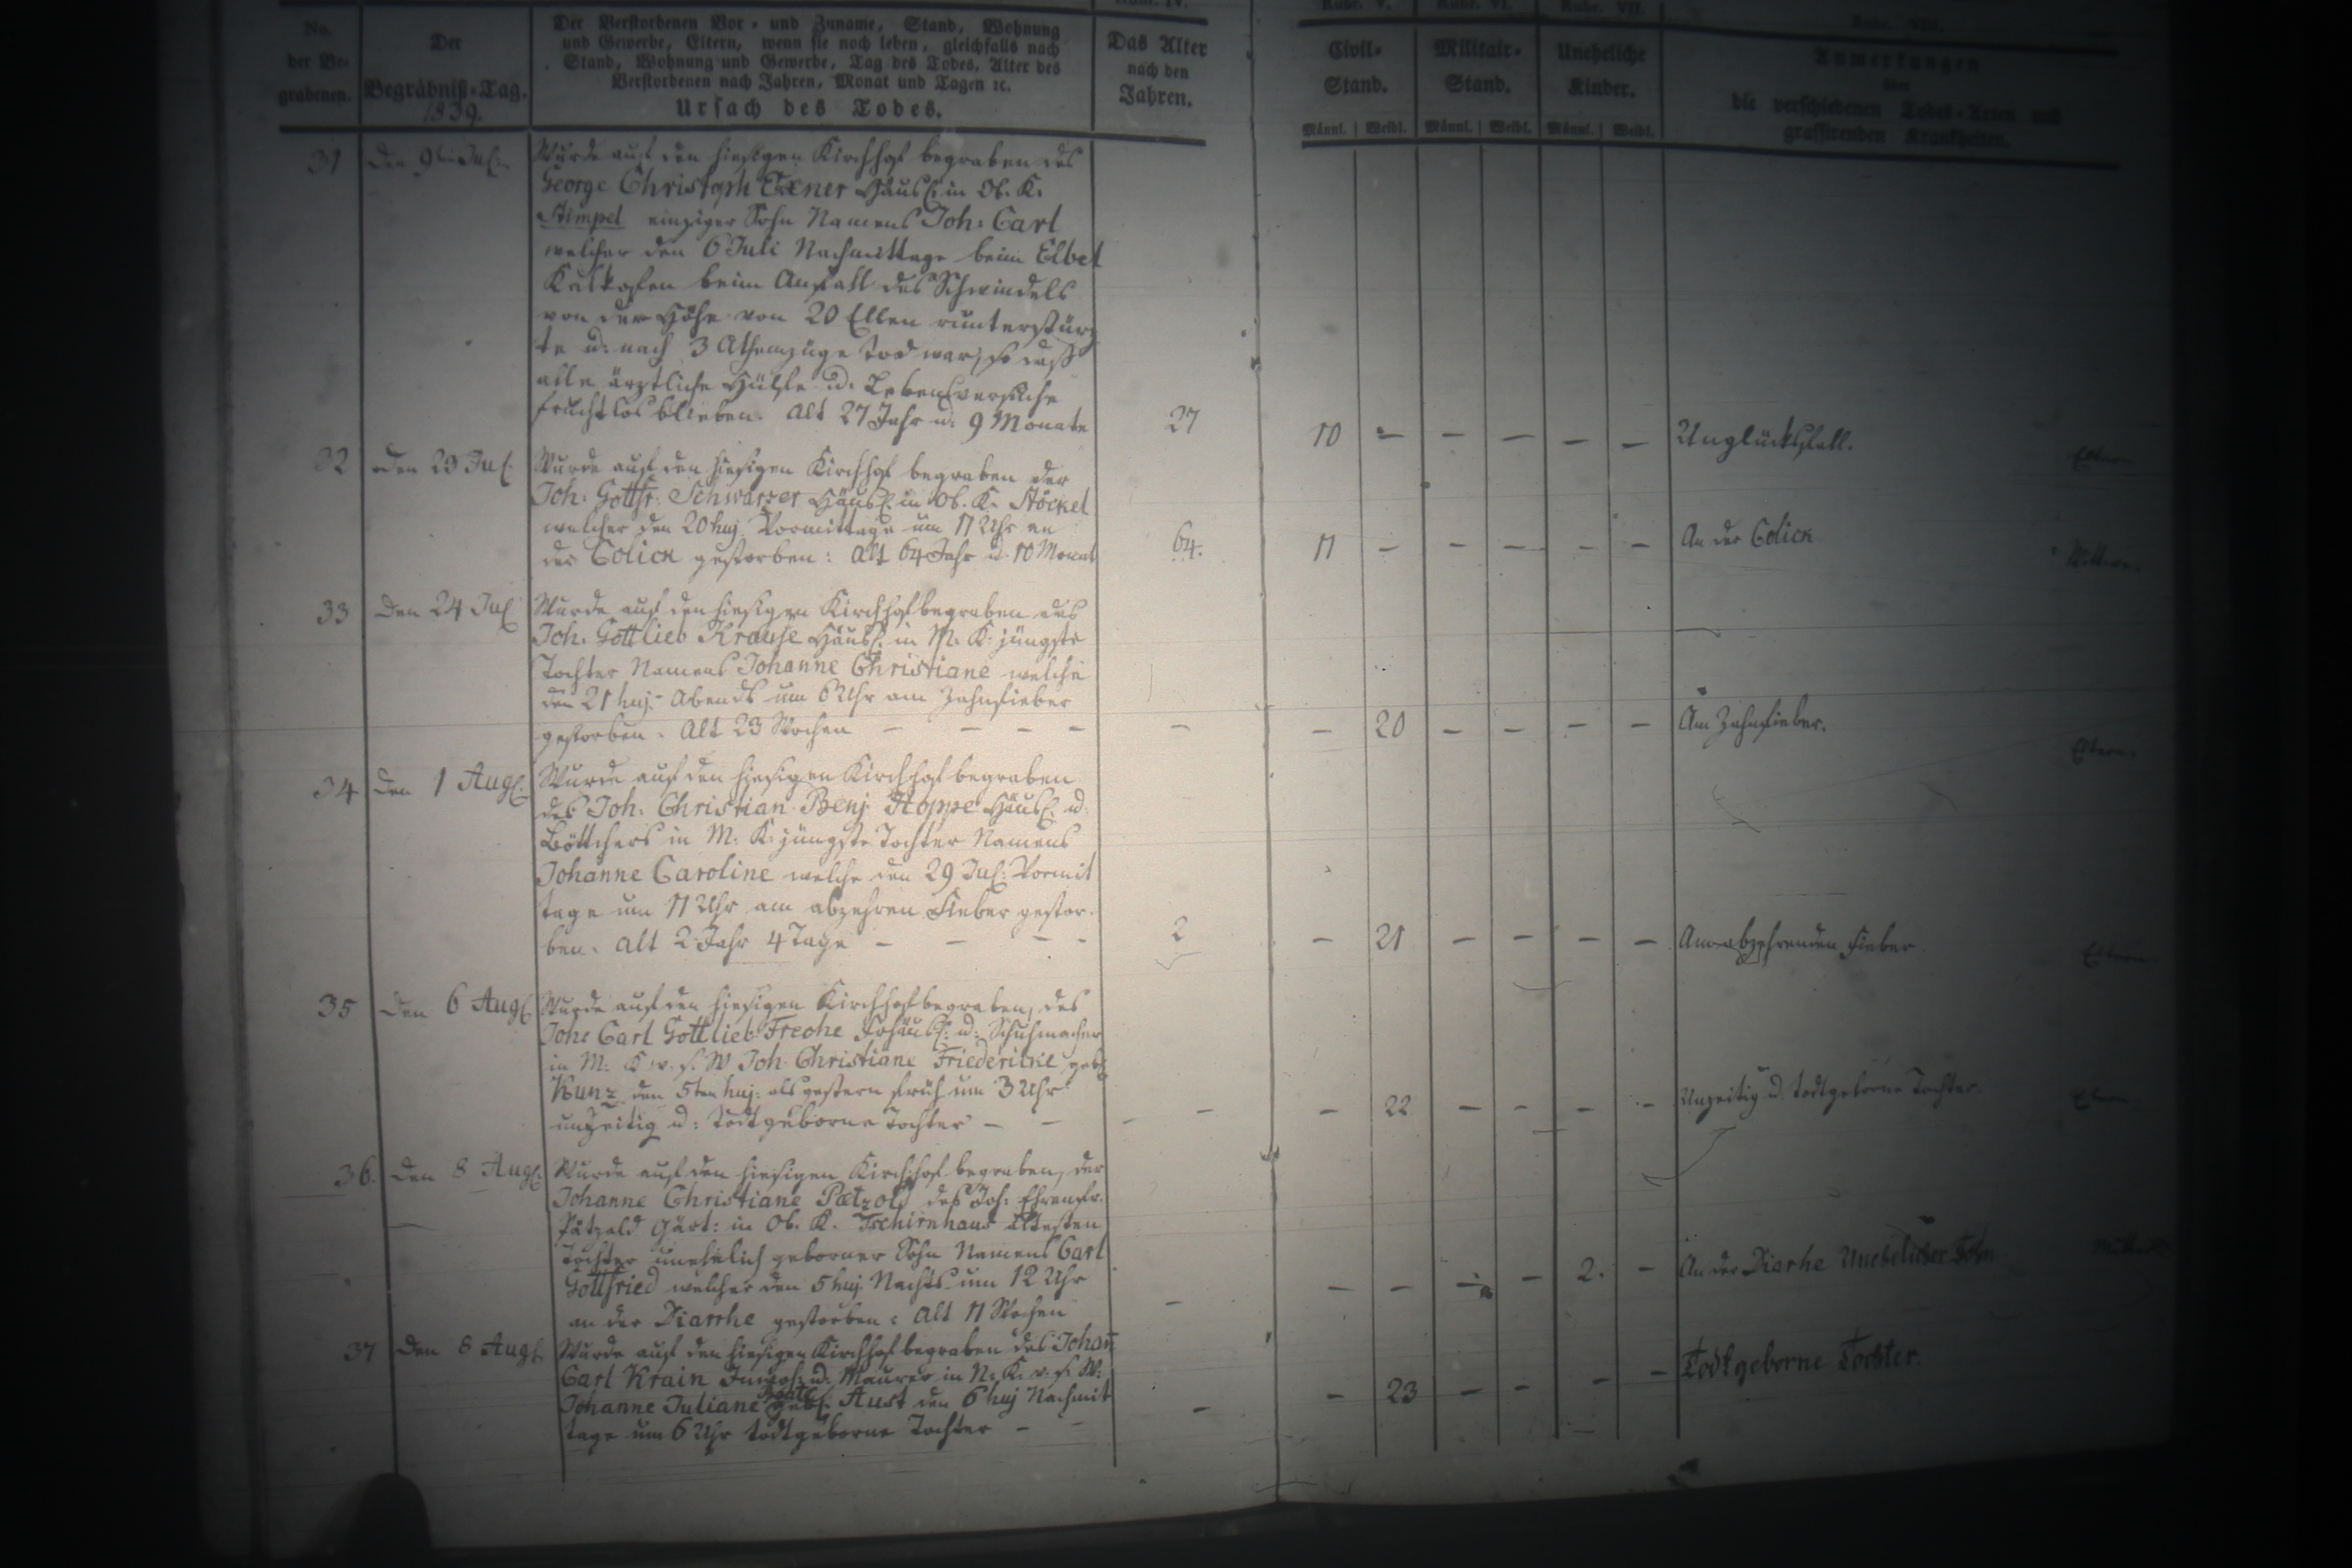 No. der Begrabenen.
Der Begräbniß=Tag. 1839.
Der Verstorbenen Vor= und Zuname, Stand, Wohnung
und Gewerbe, Eltern, wenn sie noch leben, gleichfalls nach
Stand, Wohnung und Gewerbe, Tag des Todes, Alter des
Verstorbenen nach Jahren, Monat und Tagen ꝛc.
Ursach des Todes.
Das Alter nach den Jahren.
Rubr. V. Rubr. VI. Rubr. VII. Rubr. VIII.
Civil= Stand. Männl. Weibl.
Militair= Stand. Männl. Weibl.
Uneheliche Kinder. Männl. Weibl.
Anmerkungen
über
die verschiedenen Todes=Arten und
grassirenden Krankheiten.
31 den 9ten Jul. Wurde auf den hiesigen Kirchhof begraben des
George Christoph Exner Häusl. in Ob. K.
Stimpel einziger Sohn Namens Joh: Carl
welcher den 6 Juli Nachmittage beim Elbel
Kalkofen beim Anfall des Schwindels
von der Höhe von 20 Ellen runterstürz
te u: nach 3 Athemzüge Tod war, so daß
alle ärztliche Hülfe u: Lebensversuche
fruchtlos blieben. Alt 27 Jahr u: 9 Monate 27 10 – – – – – Unglücksfall.
32 den 23 Jul. Wurde auf den hiesigen Kirchhof begraben der
Joh: Gottfr. Schwarzer Häusl. in Ob. K. Stöckel
welcher den 20 huj. Vormittage um 11 Uhr an
der Colick gestorben: Alt 64 Jahr u 10 Monat 64. 11 – – – – – An der Colick
33 Den 24 Jul Wurde auf den hiesigen Kirchhof begraben des
Joh. Gottlieb Krause Häusl. in M. K. jüngste
Tochter Namens Johanne Christiane welche
den 21 huj. Abends um 6 Uhr am Zahnfieber
gestorben. Alt 23 Wochen – – – – – – 20 – – – – Am Zahnfieber. Eltern
34 Den 1 Aug. Wurde auf den hiesigen Kirchhof begraben
des Joh. Christian Benj Hoppe Häusl. u
Böttchers in M. K. jüngste Tochter Namens
Johanne Caroline welche den 29 Jul. Vormit
tage um 11 Uhr am abzehren Fieber gestor.
ben. Alt 2 Jahr 4 Tage – – – – 2 – 21 – – – – Am abzehrenden Fieber. Eltern
35 Den 6 Aug Wurde auf den hiesigen Kirchhof begraben, des
Joh: Carl Gottlieb Frcohe u: Schuhmacher
in M. K v. s. W Joh. Christiane Friedericke geb.
Kunz den 5ten huj: als gestern früh um 3 Uhr
unzeitig u: Todtgeborne Tochter – – – – – 22 – – – – Unzeitig u. todtgeborne Tochter.
36. Den 8 Aug. Wurde auf den hiesigen Kirchhof begraben, der
Johanne Christiane Pätzold des Joh: Ehrenfr.
Pätzold Gärt: in Ob. K. Tschirnhaus ältesten
Tochter unehelich geborner Sohn Namens Carl
Gottfried welcher den 5 huj. Nachts um 12 Uhr
an der Diarrhe gestorben: Alt 11 Wochen – – – – – 2. – An der Diarhe Unehelicher Sohn
37 Den 8 Aug. Wurde auf den hiesigen Kirchhof begraben des Johan̄
Carl Krain u: Maurer in N: K. v. s. W:
Johanne Juliane Beate geb. Aust den 6 huj Nachmit
tage um 6 Uhr todtgeborne Tochter – – – 23 – – – – Todtgeborne Tochter.